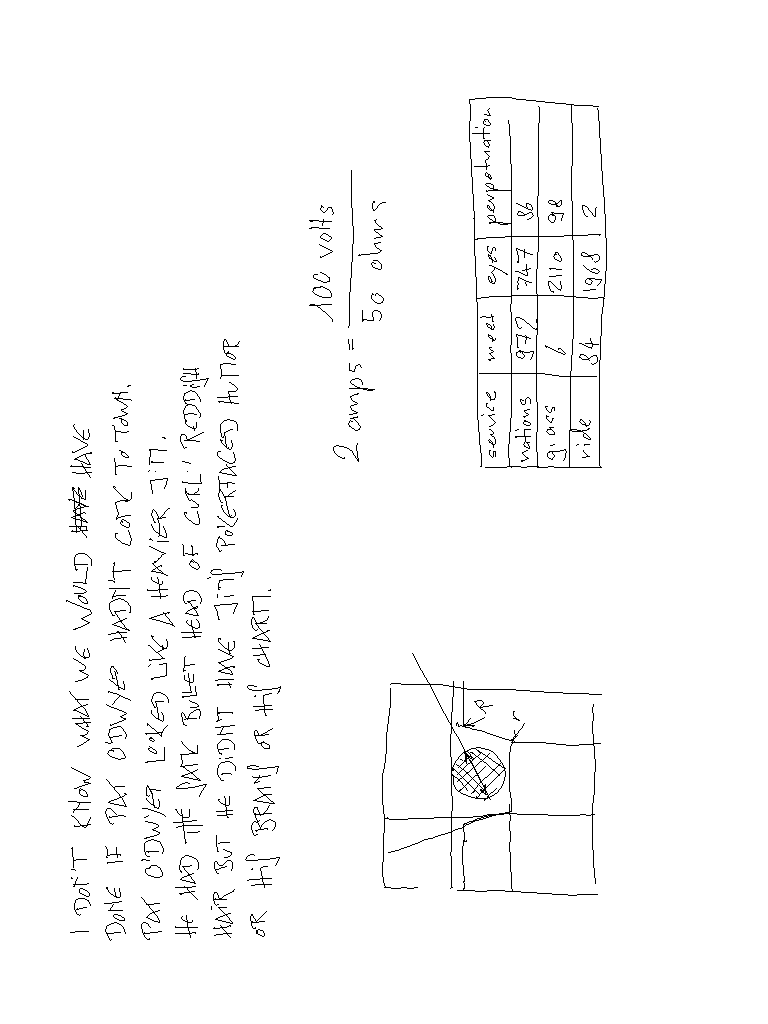 I DON'T KNOW WHAT WE WOULD HAVE HAVE
DONE IF PAT O'DWYER HADN'T COME TO TOWN.
PAT O'DWYER LOOKED LIKE A HEAVIER JIM.
HE HAD THE SAME BULET HEAD OF CURLY REDDISH
HAIR BUT HE DIDNT HAVE JIMS POKERFACED HUMOR
OR HIS BRAINS OR HIS CHARM.
2 amps = 100 volts
50 ohms
service meet eyes perpetuation
nations 972 747 86
glass 6 2110 98
ride 84 1968 2
p
r